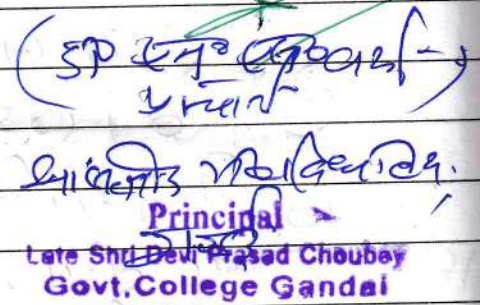 प्राचार्य
शासकीय महाविद्यालय
Principal
गण्डई
Late Shri Devi Prasad Choubey
Govt. College Gandai